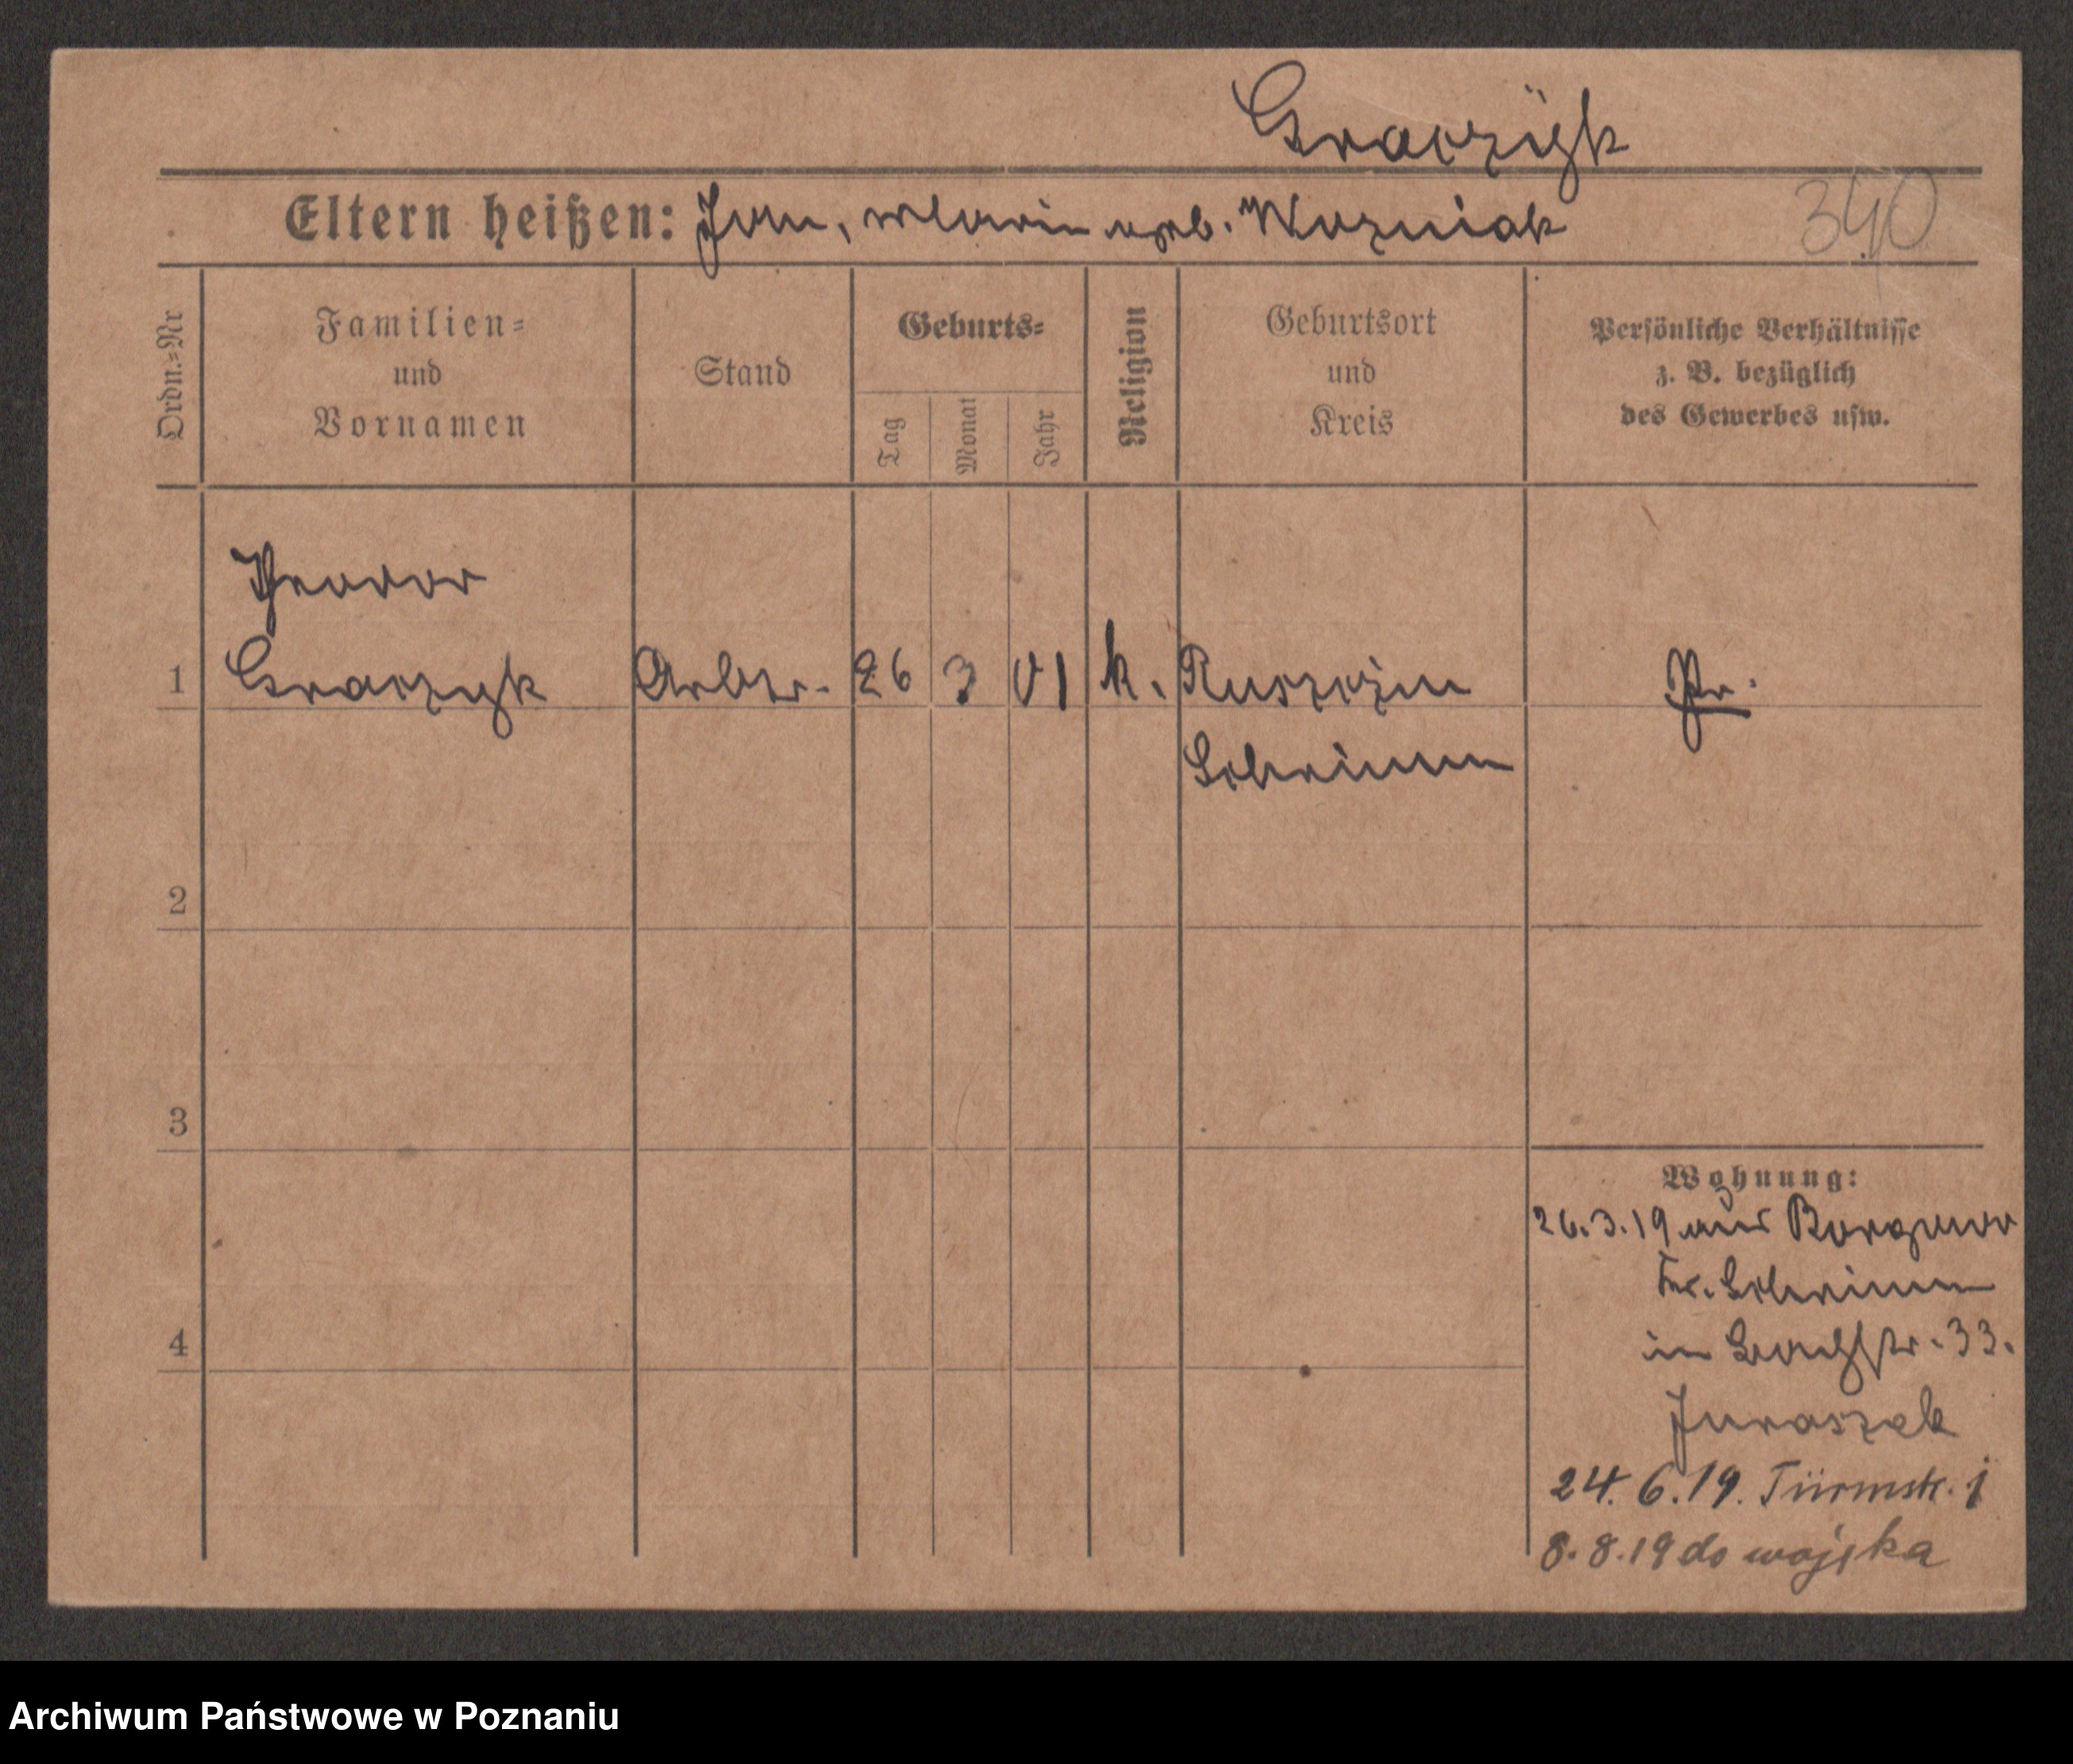 Graczÿk
Eltern heißen: Jan, Marie geb. Wozniak
340
Ordn.=Nr
Familien=
und
Vornamen
Stand
Geburts=
Tag
Monat
Jahr
Religion
Geburtsort
und
Kreis
Persönliche Verhältnisse
z. B. bezüglich
des Gewerbes usw.
Theodor
1 Graczyk Arbtr. 26 3 01 k. Ruszczin Pr.
Schrimm
2
3
4
Wohnung:
26.3.19 aus Borgowo
Kr. Schrimm
in Bachstr. 33.
Juraszek
24. 6. 19. Türmstr. 1
8. 8. 19 do wojska
Archiwum Państwowe w Poznaniu